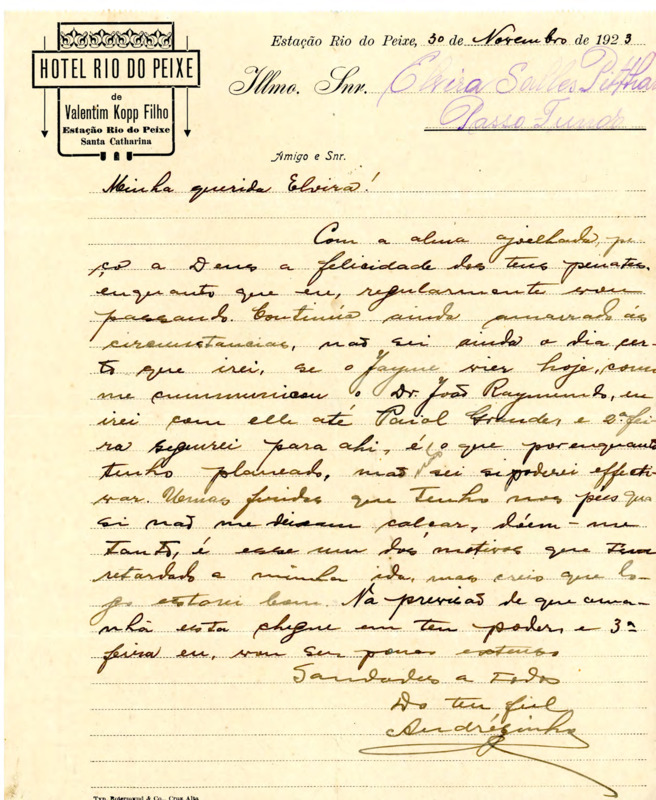 HOTEL RIO DO PEIXE
de
Valentim Kopp Filho
Estação Rio do Peixe
Santa Catharina
Estação Rio do Peixe, 30 de Novembro de 1923
Illmo. Snr. Elvira Salles
Passo Fundo
Amigo e Snr.
Minha querida Elvira!
Com a alma ajoelhada, pe-
ço a Deus a felicidade dos teus penates,
enquanto que eu, regularmente vou
passando. Continúo ainda amarrado ás
circumstancias, não sei ainda o dia cer-
to que irei, se o Jayme vier hoje, como
me cummunicou o Dr. João Raymundo, eu
irei com elle até Paiol Grande, e 2ª fei-
ra seguirei para ahi, é o que por enquanto
tenho planeado, mas sei si poderei effecti-
var. Umas feridas que tenho nos pés qua
si não me deixam calçar, dóem-me
tanto, é esse um dos motivos que tem
retardado a minha ida, mas creio que lo-
go estarei bom. Na previsão de que ama-
nhã esta chegue em teu poder, e 3ª
feira eu, vou ser pouco extenso
Saudades a todos
Do teu fiel
Andrésinho
Typ. Rotermund & Co., Cruz Alta